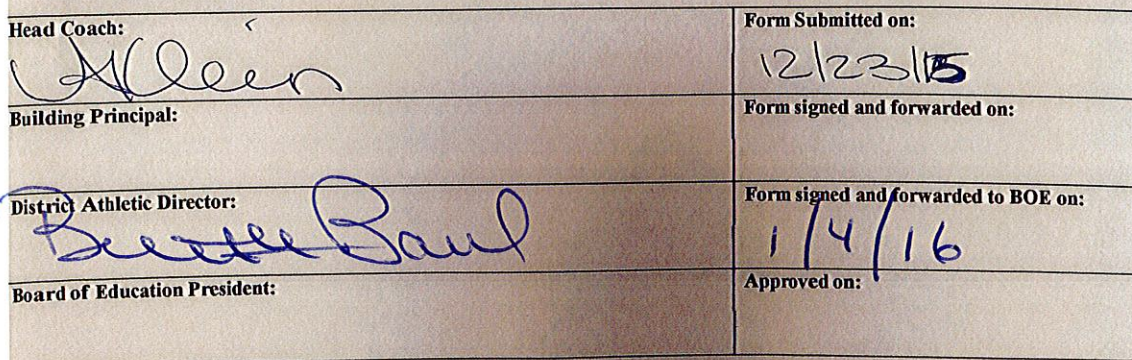 Head Coach:
Form Submitted on:
12/23/15
Building Principal:
Form signed and forwarded on:
District Athletic Director:
Form signed and forwarded to BOE on:
1/4/16
Board of Education President:
Approved on: